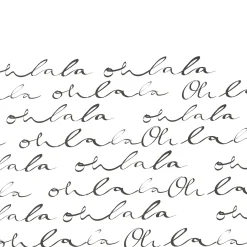 ohlala ohlala
la ohlala Ohla
ohlala ohlala
ohlalaOhlala
lala ohlala oh
la ohlalaOhlala
ohlala ohlala oh
ohlala Ohla